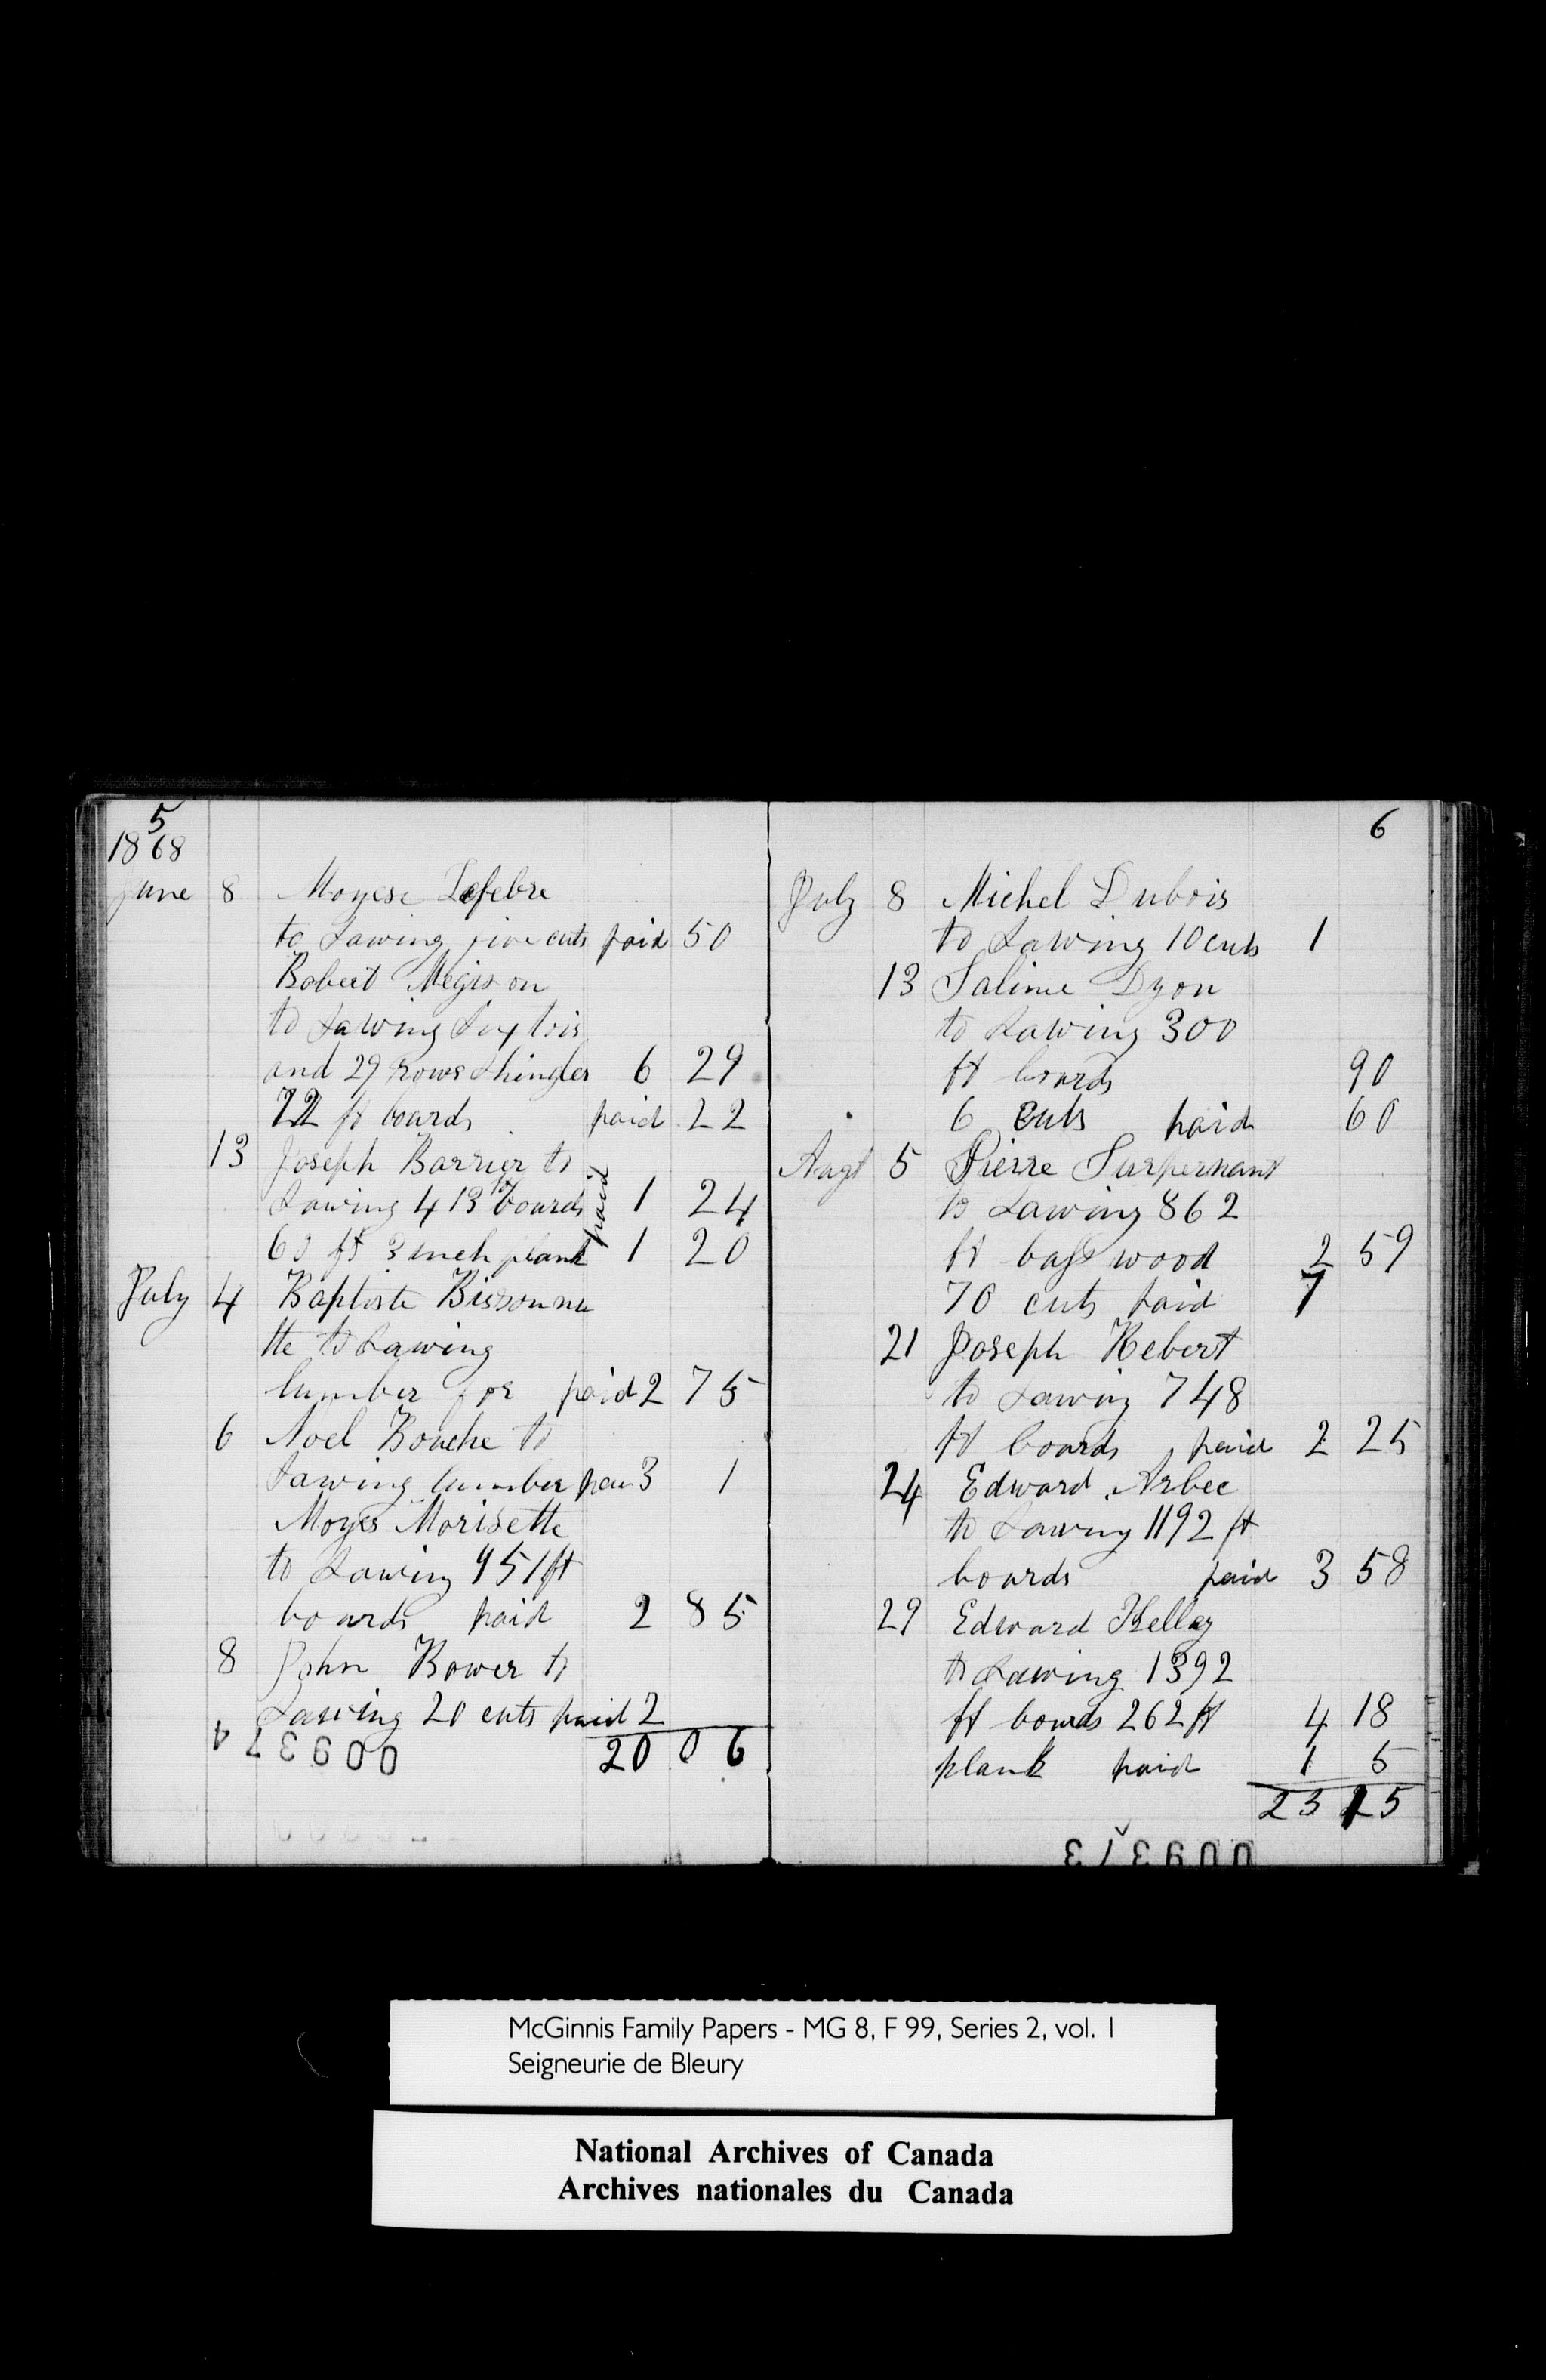 5
1868
June 8 Moyese Lefebre
to Sawing five cuts paid 50
Robert Megison
to Sawing Six tois
and 29 rows Shingles 6 29
72 ft boards paid 22
13 Joseph Barrier to
Sawing 413 ft boards 1 24
paid
60 ft 3 inch plank 1 20
July 4 Baptiste Bissonne
tte to Sawing
lumber for paid 2 75
6 Noel Bouche to
Sawing lumber pai 3 1
Moyes Morisette
to Sawing 951 ft
boards paid 2 85
8 John Bower to
Sawing 20 cuts paid 2
20 06
009374
6
July 8 Michel Dubois
to Sawing 10 cuts 1
13 Salime Dyon
to Sawing 300
ft boards 90
6 cuts paid 60
Augt 5 Pierre Surpernant
to Sawing 862
ft bass wood 2 59
70 cuts paid 7
21 Joseph Hebert
to Sawing 748
ft boards paid 2 25
24 Edward Arbec
to Sawing 1192 ft
boards paid 3 58
29 Edward Kelley
to Sawing 1392
ft boards 262 ft 4 18
plank paid 1 5
23 15
009373
McGinnis Family Papers - MG 8, F 99, Series 2, vol. 1
Seigneurie de Bleury
National Archives of Canada
Archives nationales du Canada